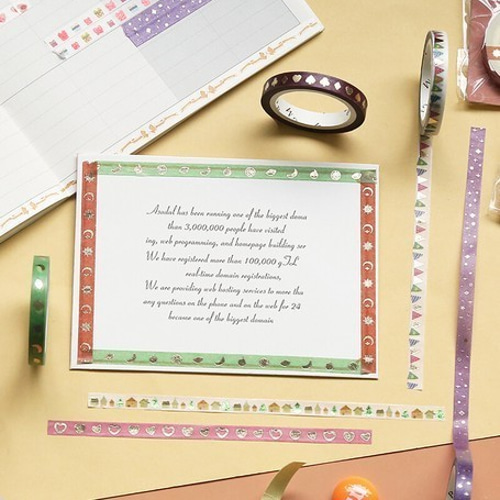 Asadal has been running one of the biggest doma
than 3,000,000 people have visited
ing, web programming, and homepage building ser
We have registered more than 100,000 gTL
real-time domain registrations,
We are providing web hosting services to more tha
any questions on the phone and on the web for 24
become one of the biggest domain